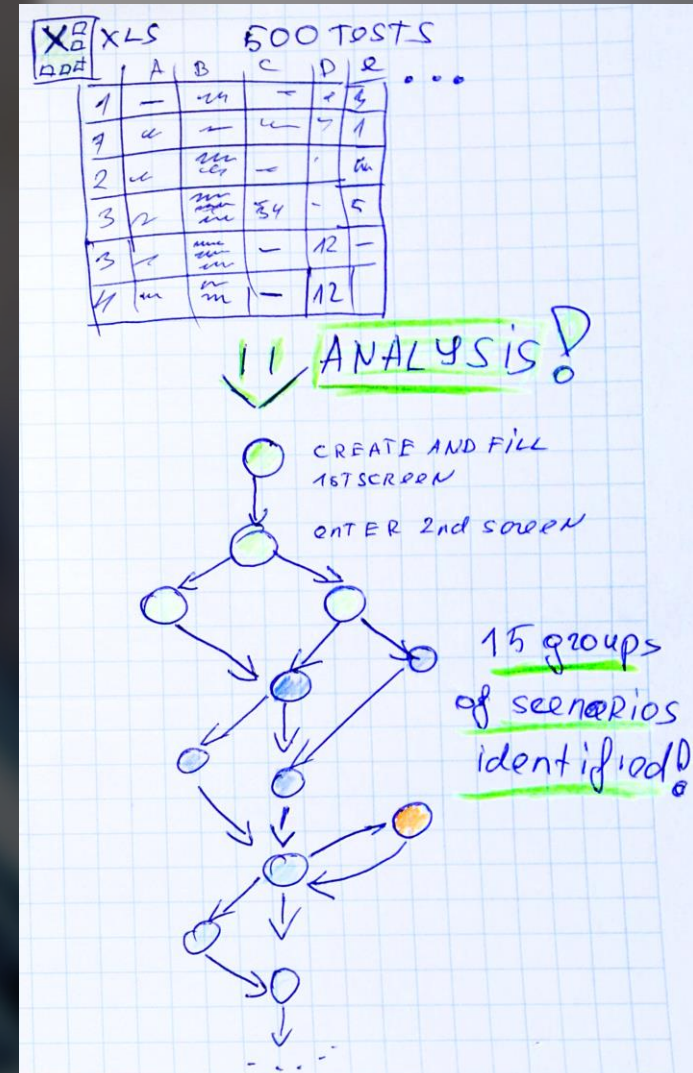 X XLS 500 TOSTS
A B C D e ...
1 3
7 1
2
3 54 - 5
3 - 12 -
4 - 12
ANALYSiS!
CREATE AND FiLL
1ST SCREEN
enTER 2nd screen
15 groups
of scenaRios
identified!